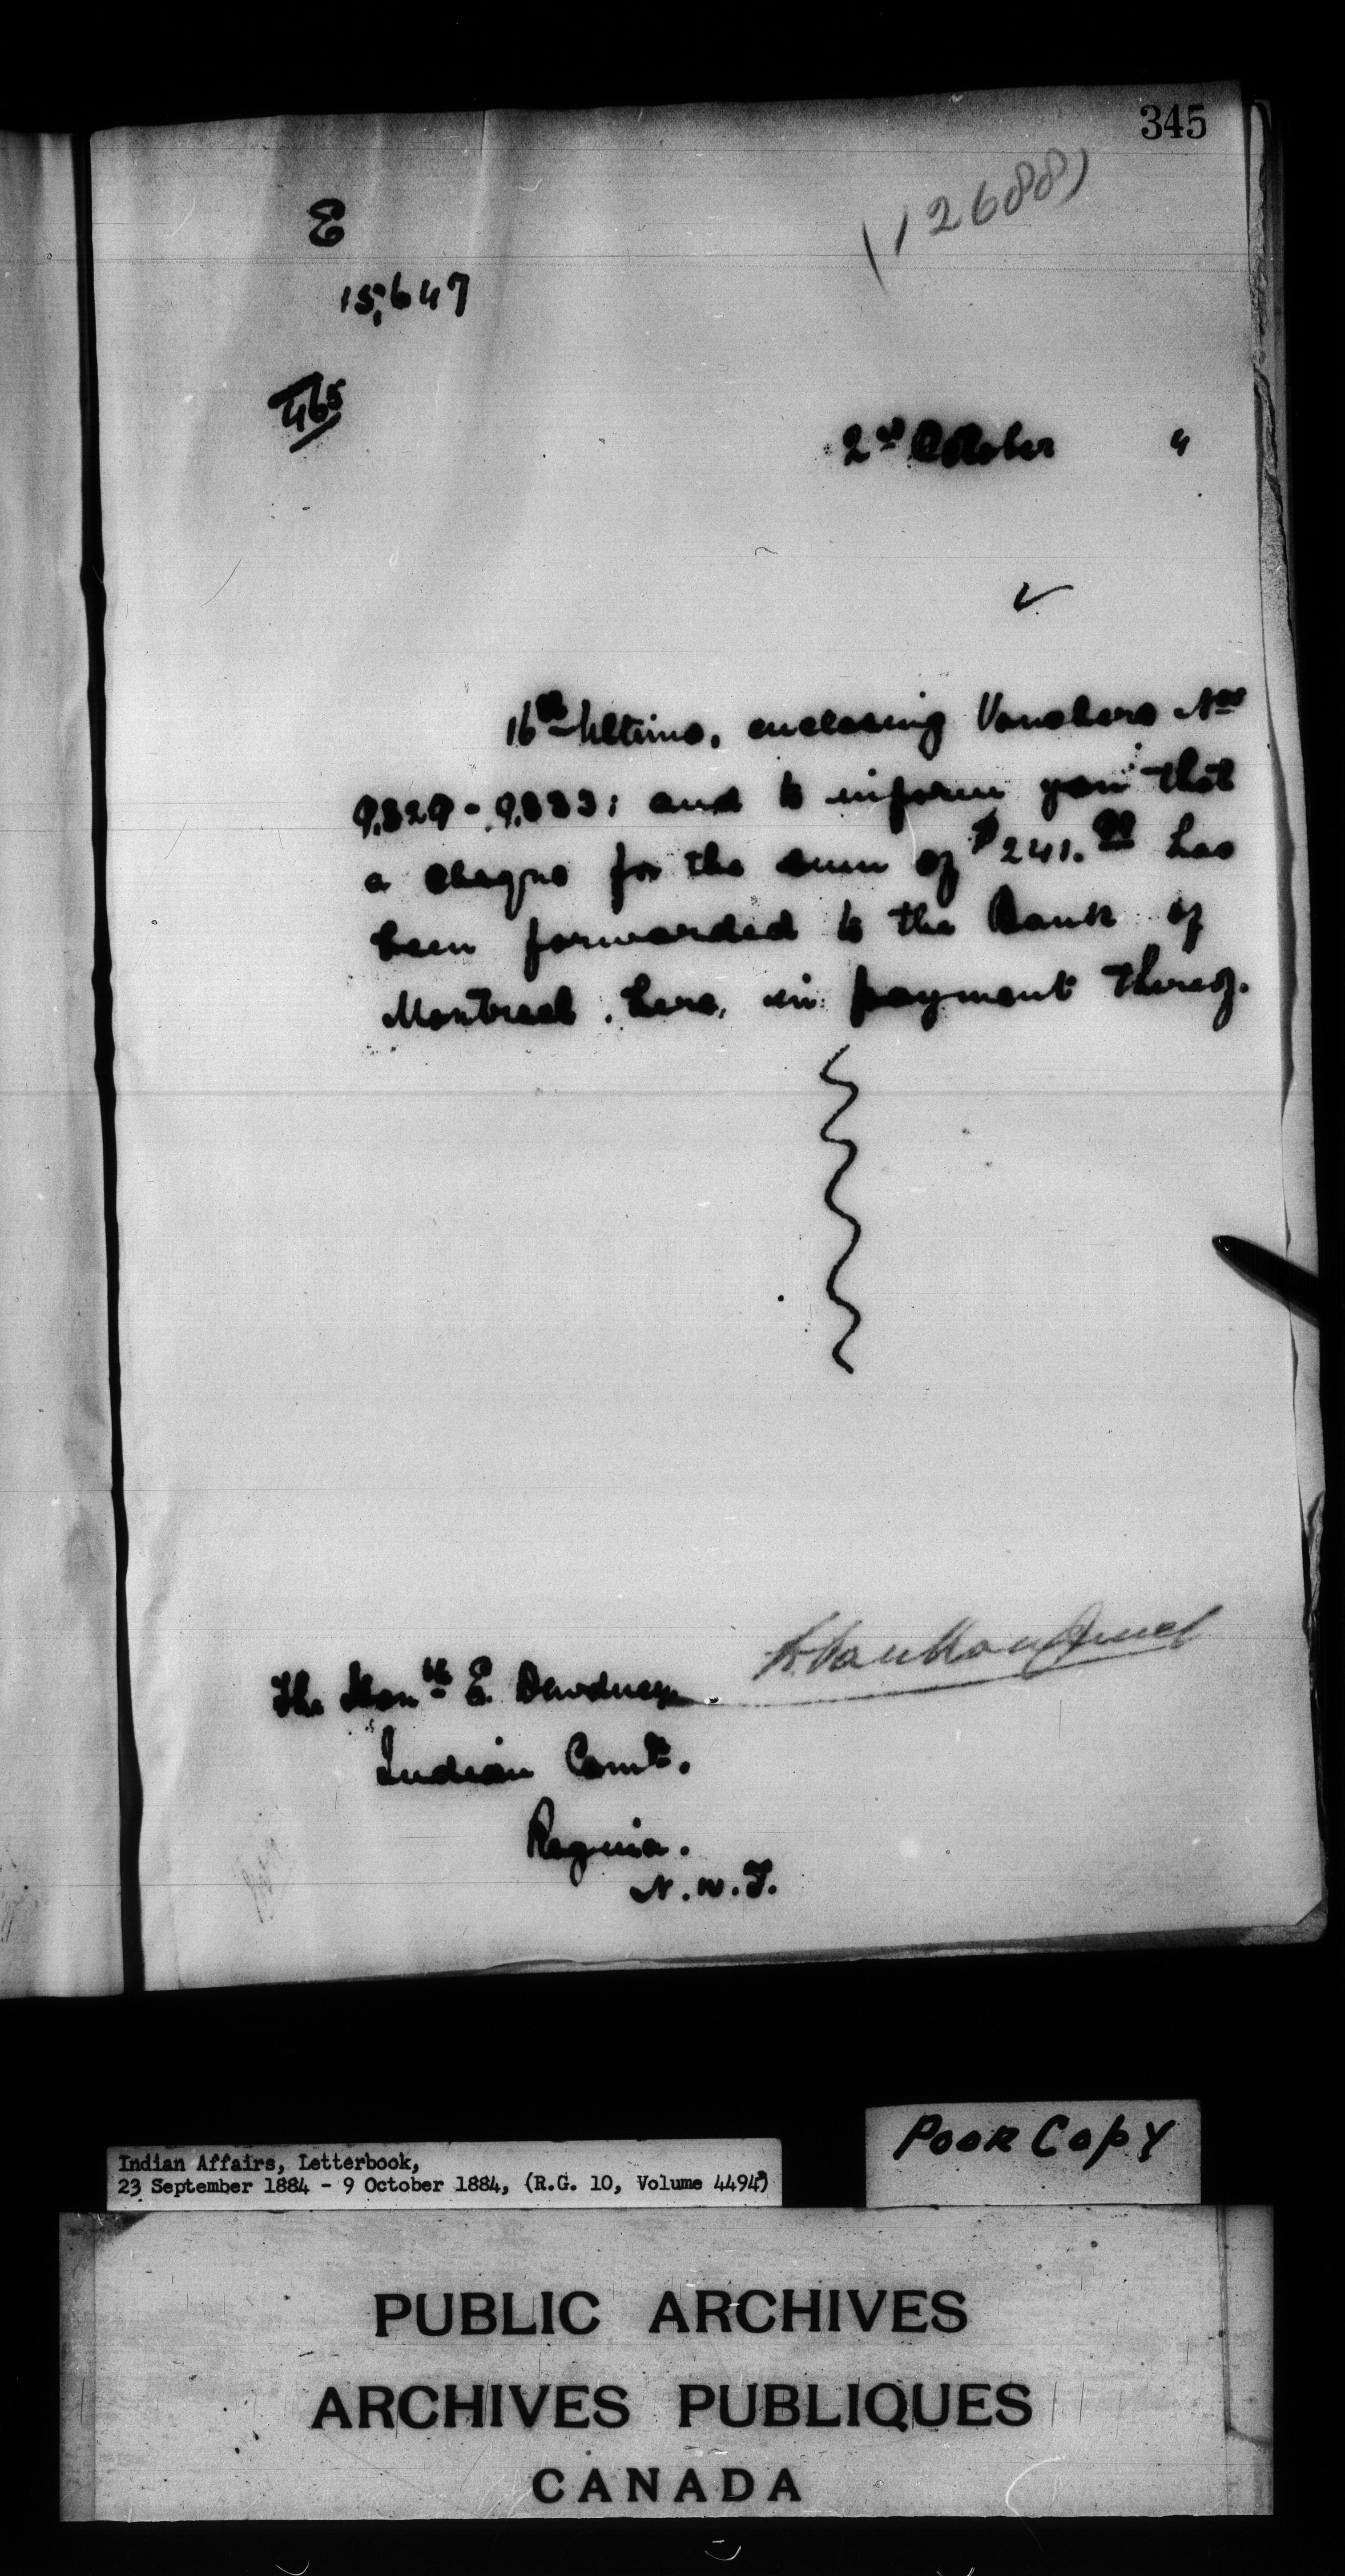 345
(12688)
E
15,647
465
2nd October "
16th Ultimo, enclosing Vouchers Nos
9,829 - 9,833; and to inform you that
a cheque for the sum of $241.90 has
been forwarded to the Bank of
Montreal, here, in payment thereof.
L. VanKoughnet
The Honble E. Dewdney
Indian Comr.
Regina.
N.W.T.
Poor Copy
Indian Affairs, Letterbook,
23 September 1884 - 9 October 1884, (R.G. 10, Volume 4494)
PUBLIC ARCHIVES
ARCHIVES PUBLIQUES
CANADA